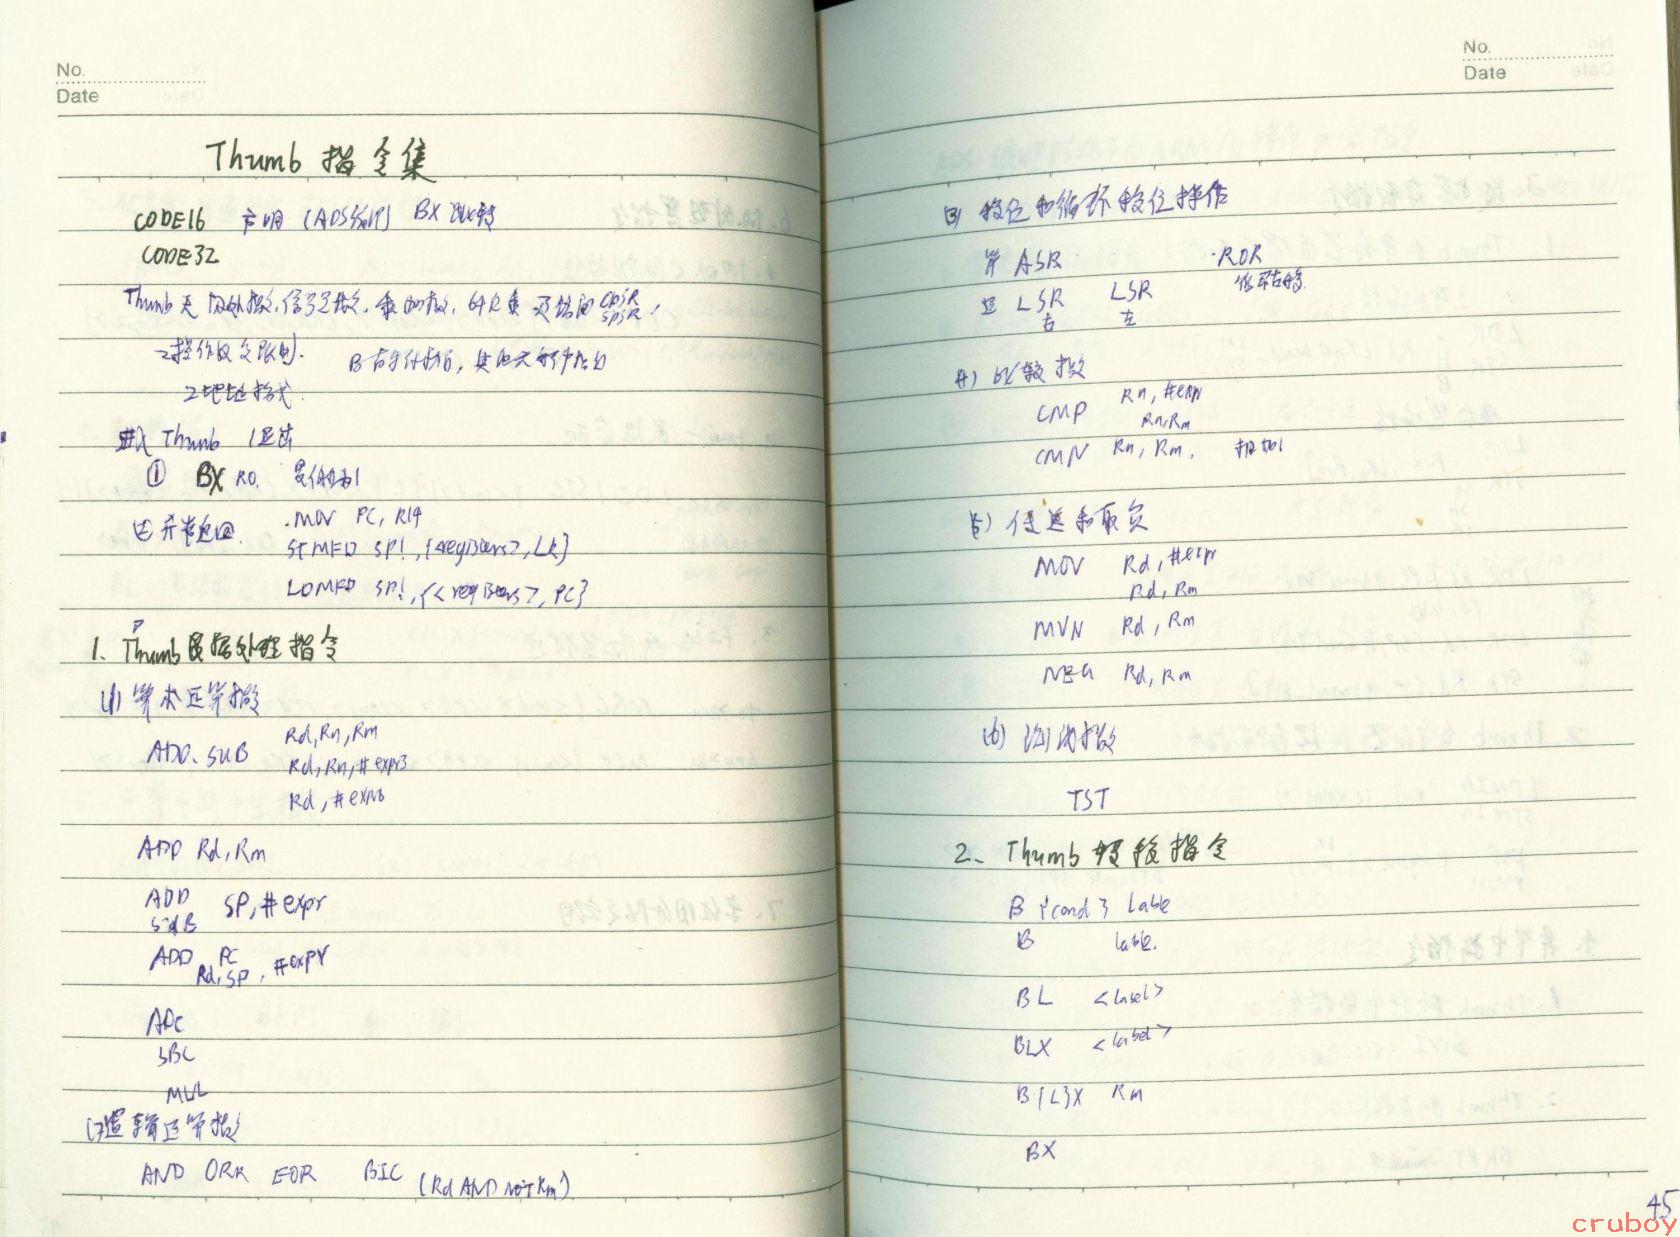 No.
Date
Thumb 指令集
CODE16 声明 (ADS编译) BX 跳转
CODE32
Thumb 无 协处理, 信号量, 乘加, 64位乘 及访问 CPSR
SPSR,
2操作数受限制.
B 有条件执行, 其他无条件执行
2地址格式.
进入 Thumb 1退出
① BX R0.
② 异常返回. .MOV PC, R14
STMFD SP!, {<registers>, LR}
LDMFD SP!, {<registers>, PC}
1、Thumb数据处理指令
(1) 算术运算指令
ADD、SUB Rd, Rn, Rm
Rd, Rn, #expr3
Rd, #expr8
ADD Rd, Rm
ADD
SUB SP, #expr
ADD Rd, PC
SP, #expr
ADC
SBC
MUL
(2)逻辑运算指令
AND ORR EOR BIC (Rd AND NOT Rm)
No.
Date
(3) 移位和循环移位操作
算 ASR ·ROR
循环右移
逻 LSR LSR
右 左
(4) 比较指令
CMP Rn, #expr
Rn, Rm
CMN Rn, Rm,
(5) 传送和取负
MOV Rd, #expr
Rd, Rm
MVN Rd, Rm
NEG Rd, Rm
(6) 测试指令
TST
2、Thumb 转移指令
B {cond} Lable
B lable.
BL <label>
BLX <label>
B{L}X Rm
BX
45
cruboy